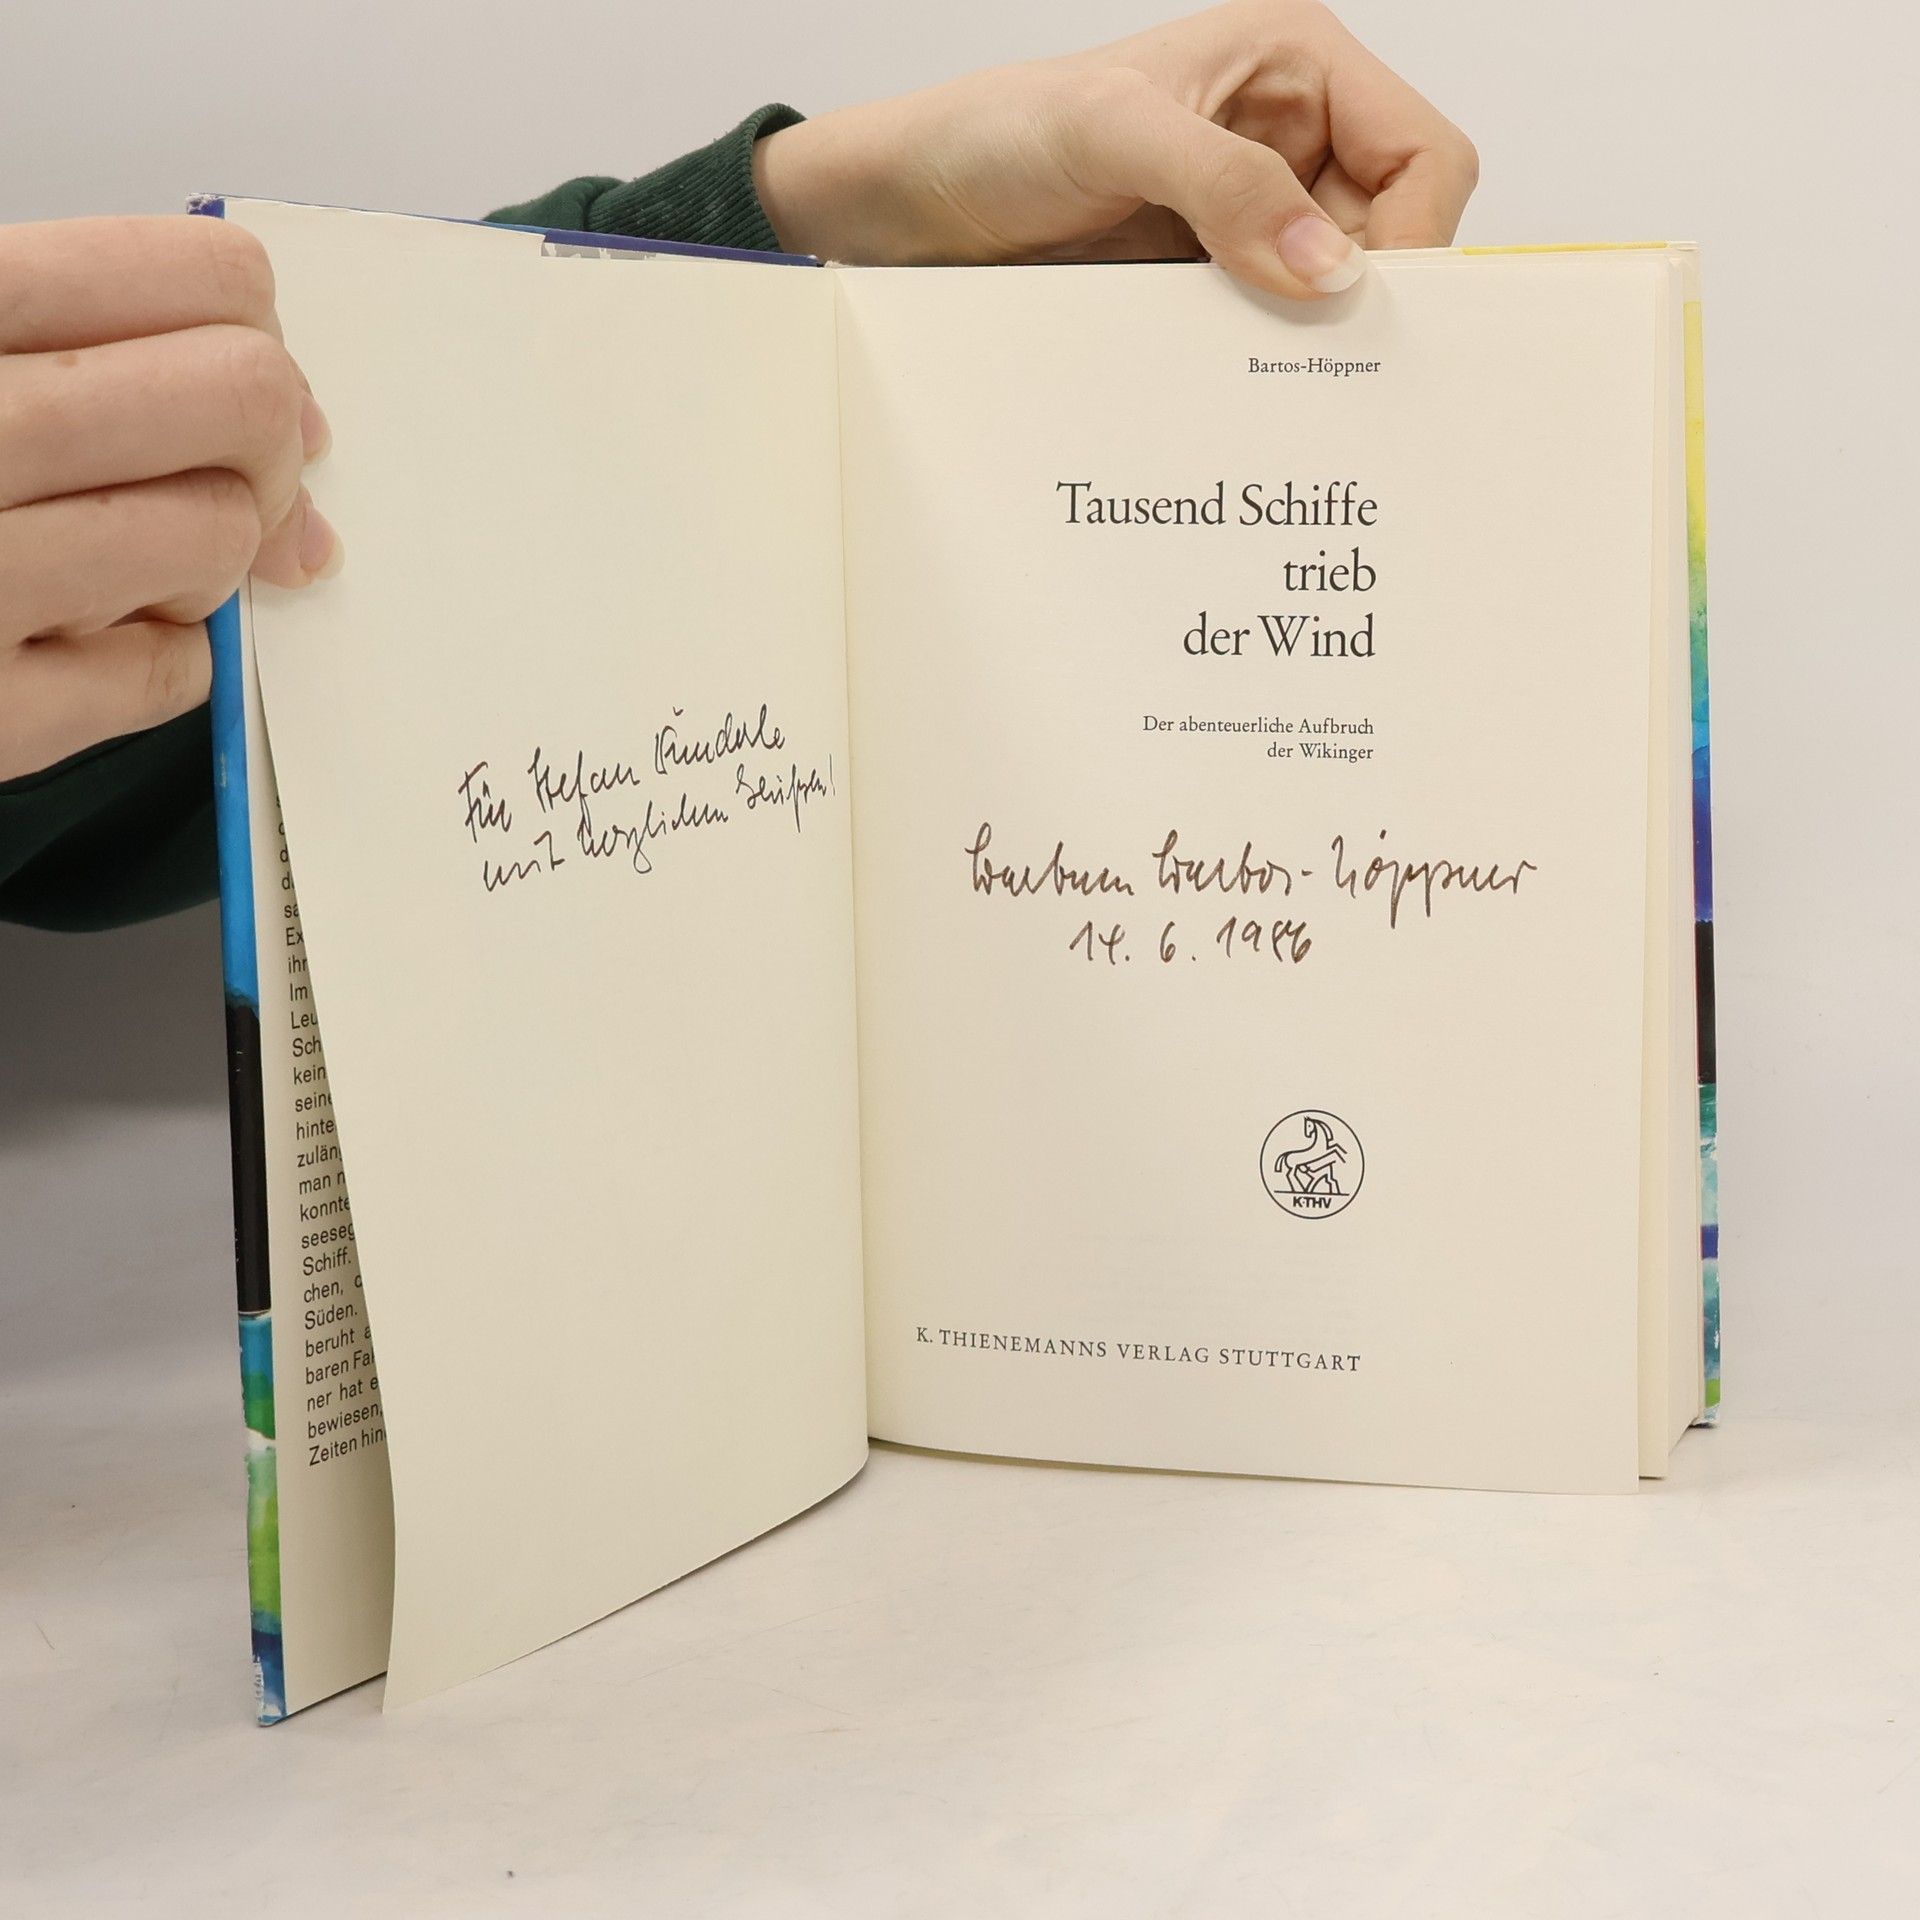 Für Stefan
mit herzlichen Grüßen!
sa
Ex
ihr
Im
Leu
Sch
kein
seine
hinte
zulän
man n
konnte
seeseg
Schiff.
chen, d
Süden.
beruht a
baren Fak
ner hat e
bewiesen,
Zeiten hin
Bartos-Höppner
Tausend Schiffe
trieb
der Wind
Der abenteuerliche Aufbruch
der Wikinger
Barbara Bartos-Höppner
14. 6. 1986
K·THV
K. THIENEMANNS VERLAG STUTTGART